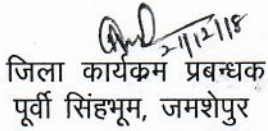 21/12/18
जिला कार्यकम प्रबन्धक
पूर्वी सिंहभूम, जमशेपुर